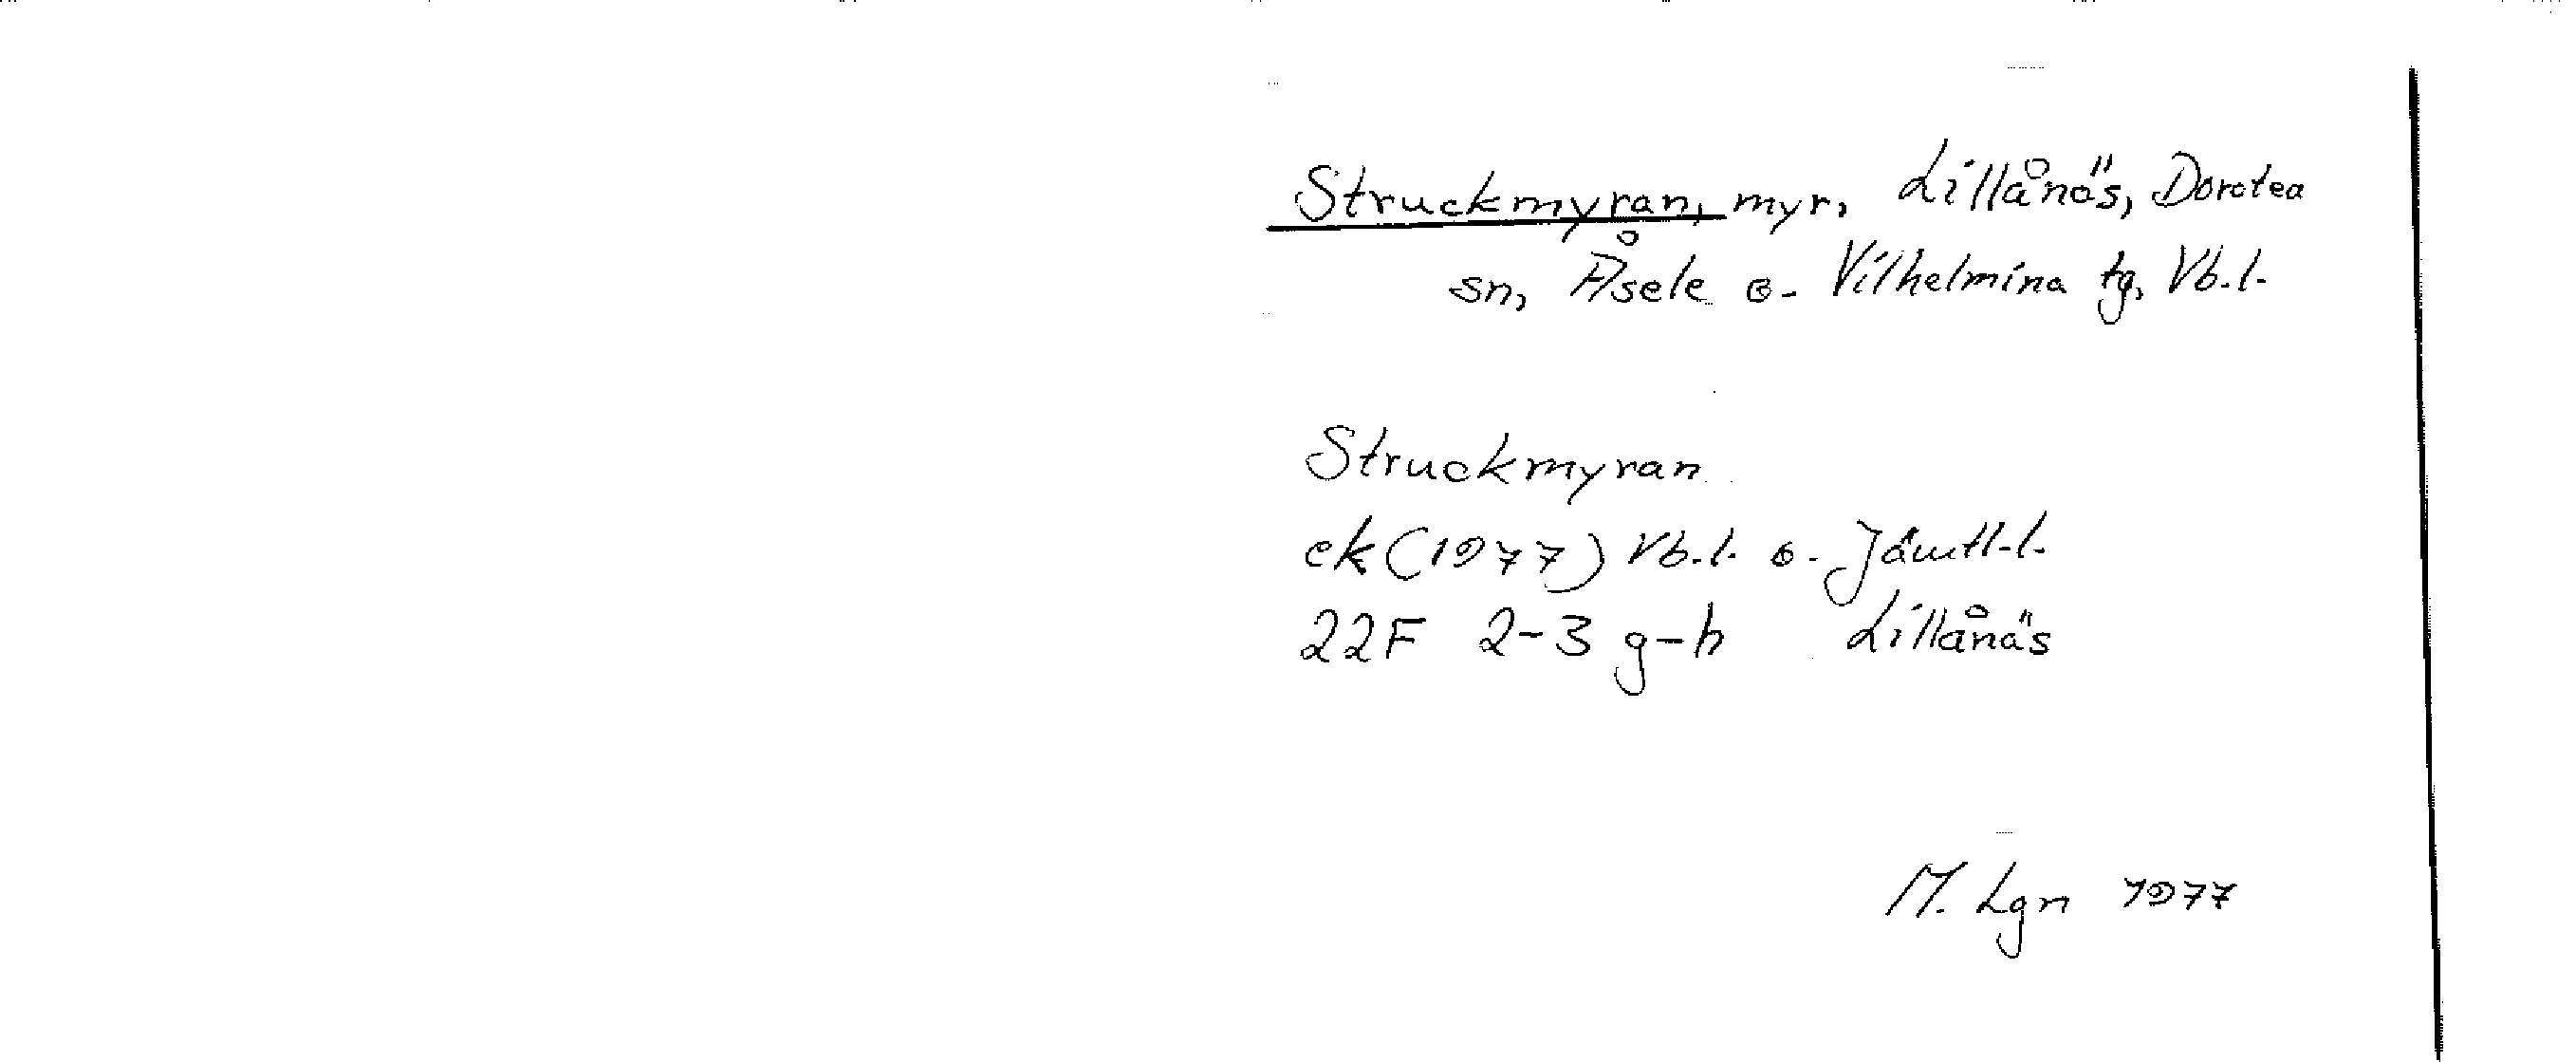 Struckmyran, myr, Lillånäs, Dorotea
sn, Åsele o. Vilhelmina tg, Vb.l.
Struckmyran
ek (1977) Vb.l. o. Jämtl.l.
22F 2-3 g-h Lillånäs
M. Lgn 1977